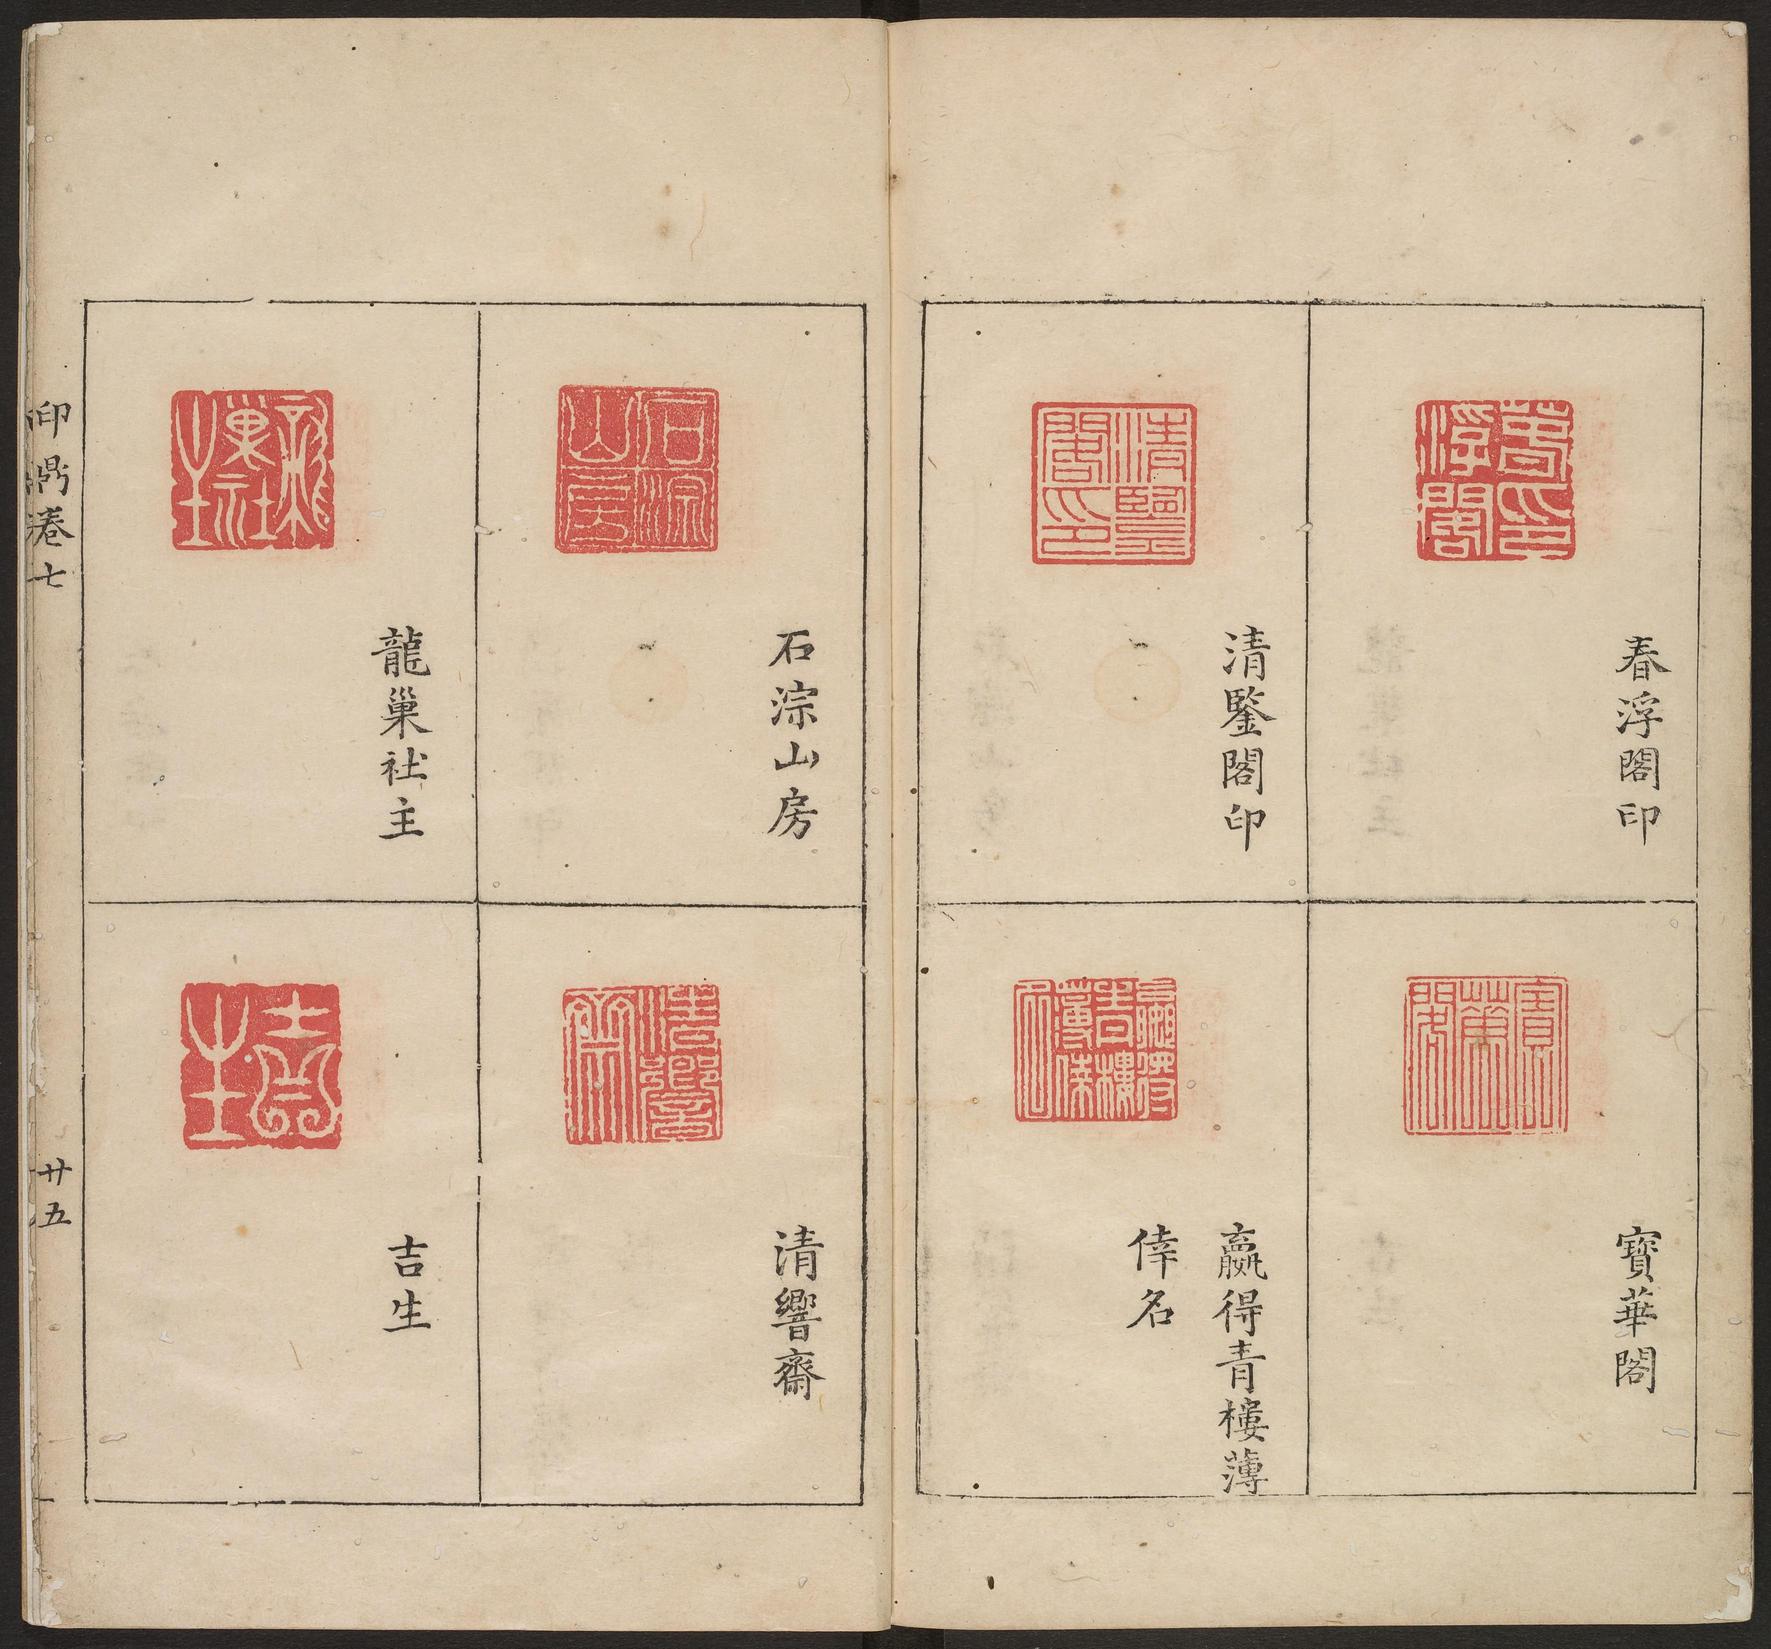 春浮閣印
寶華閣
清鑒閣印
贏得青樓薄
倖名
石淙山房
清響齋
龍巢社主
吉生
印鼎卷七
廿五